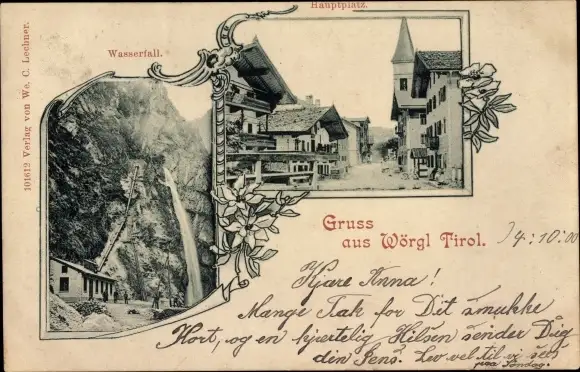 Hauptplatz.
Wasserfall.
101612 Verlag von We. C. Lechner.
Gruss
aus Wörgl Tirol.
14:10:00
Kjare Anna!
Mange Tak for Dit smukke
Kort, og en hjertelig Hilsen sender Dig
din Jens. Lev vel til vi sees
paa Søndag.